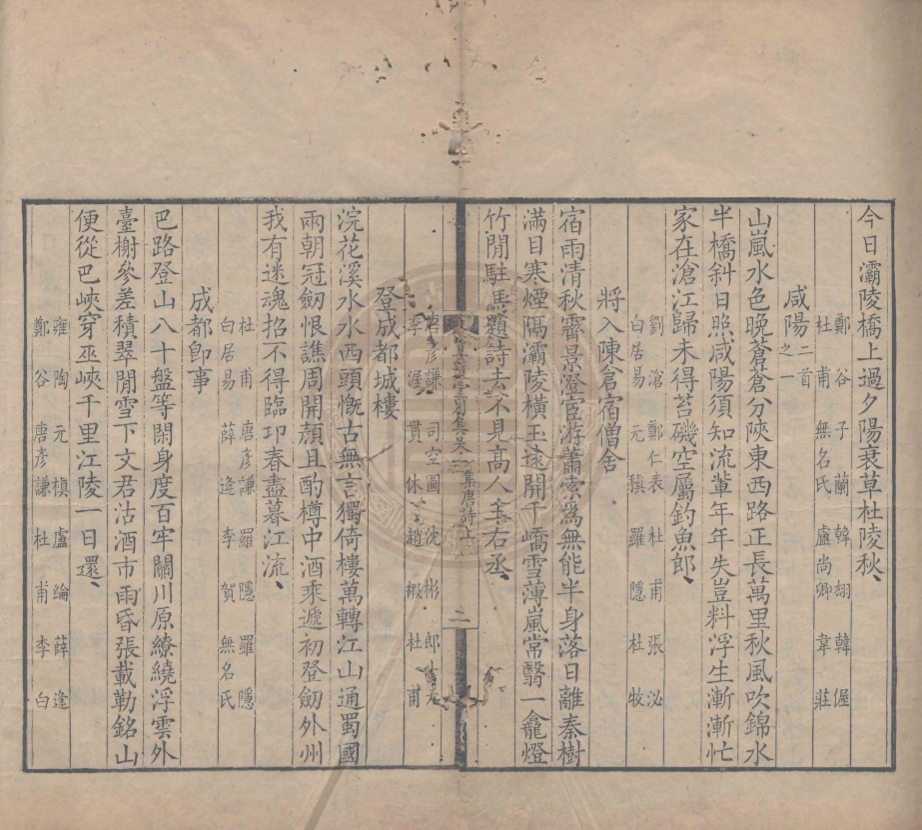 今日灞陵橋上過夕陽衰草杜陵秋、
鄭谷 子蘭 韓翃 韓偓
杜甫 無名氏 盧尚卿 韋莊
咸陽二首之一
山嵐水色晚蒼蒼分陝東西路正長萬里秋風吹錦水
半橋斜日照咸陽須知流輩年年失豈料浮生漸漸忙
家在滄江歸未得苔磯空屬釣魚郎、
劉滄 鄭仁表 杜甫 張泌
白居易 元稹 羅隱 杜牧
將入陳倉宿僧舍
宿雨清秋霽景澄宦游蕭索爲無能半身落日離秦樹
滿目寒煙隔灞陵橫玉遠開千嶠雪薄嵐常翳一龕燈
竹閒駐馬題詩去不見高人王右丞、
集唐詩上 二
唐彥謙 司空圖 沈彬 郎士元
李渥 貫休 趙嘏 杜甫
登成都城樓
浣花溪水水西頭慨古無言獨倚樓萬轉江山通蜀國
兩朝冠劒恨譙周開顏且酌樽中酒乘遽初登劒外州
我有迷魂招不得臨邛春盡暮江流、
杜甫 唐彥謙 羅隱 羅隱
白居易 薛逢 李賀 無名氏
成都卽事
巴路登山八十盤等閑身度百牢關川原繚繞浮雲外
臺榭參差積翠閒雪下文君沽酒市雨昏張載勒銘山
便從巴峽穿巫峽千里江陵一日還、
雍陶 元稹 盧綸 薛逢
鄭谷 唐彥謙 杜甫 李白